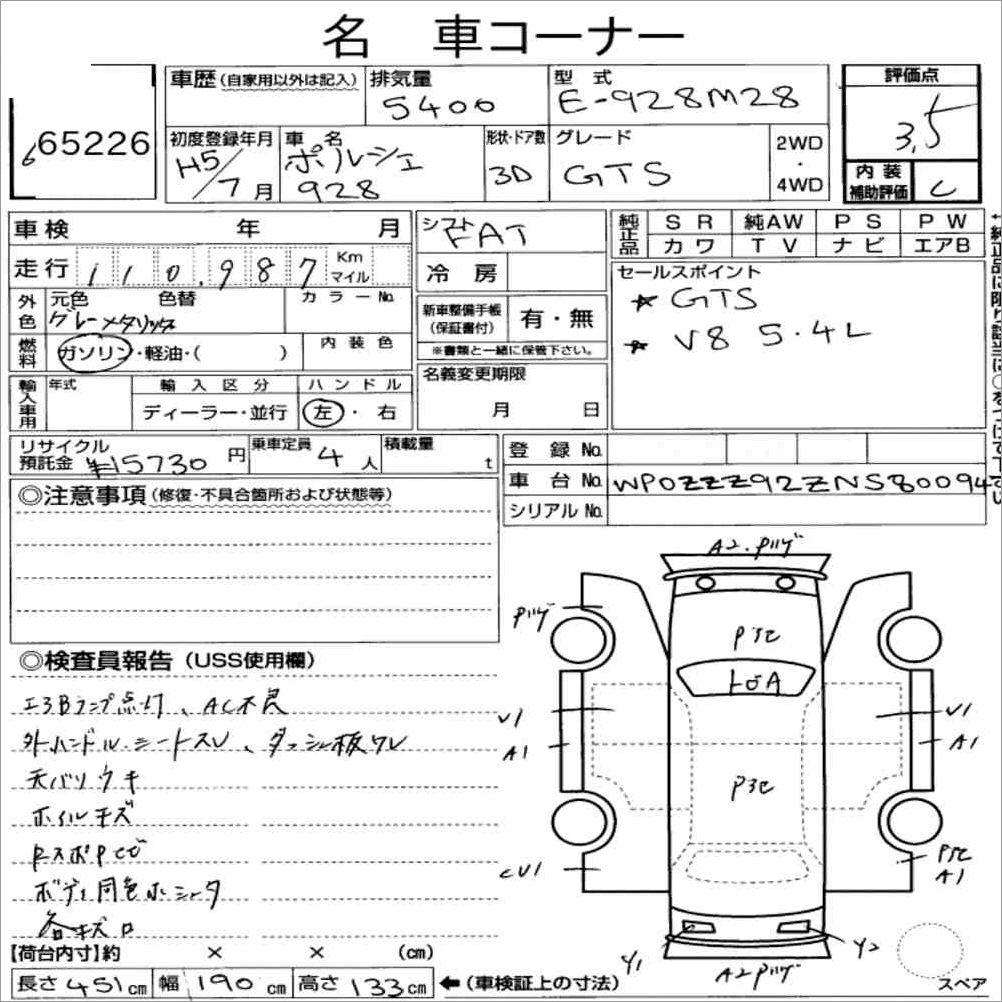 名 車コーナー
665226
車歴(自家用以外は記入)
排気量
5400
型式
E-928M28
評価点
3.5
初度登録年月
H5/7月
車名
ポルシェ
928
形状・ドア数
3D
グレード
GTS
2WD
・
4WD
内装
補助評価
C
車検 年 月
シフト
FAT
純正品
SR 純AW PS PW
カワ TV ナビ エアB
走行 110,987 Km マイル
冷房
セールスポイント
☆ GTS
☆ V8 5.4L
外色
元色 色替
グレーメタリック
カラーNo.
新車整備手帳
(保証書付)
有・無
※書類と一緒に保管下さい。
燃料
ガソリン・軽油・( )
内装色
名義変更期限
月 日
輸入車用
年式
輸入区分
ディーラー・並行
ハンドル
左・右
リサイクル
預託金 ¥15730円
乗車定員 4人
積載量 t
登録No.
車台No. WP0ZZZ92ZNS80094
シリアルNo.
◎注意事項(修復・不具合箇所および状態等)
A2・Pハゲ
Pハゲ
P3セ
トビA
U1 U1
A1 A1
P3セ
P3セ
A1
CU1
Y1 Y2
A2Pハゲ
スペア
◎検査員報告(USS使用欄)
エアBランプ点灯、AC不良
外ハンドル・シートスレ、ダッシュ板ワレ
天バリウキ
ホイルキズ
RスポPヒビ
ボディ同色ホシータ
各キズ
【荷台内寸】約 × × (cm)
長さ451cm 幅190cm 高さ133cm ←(車検証上の寸法)